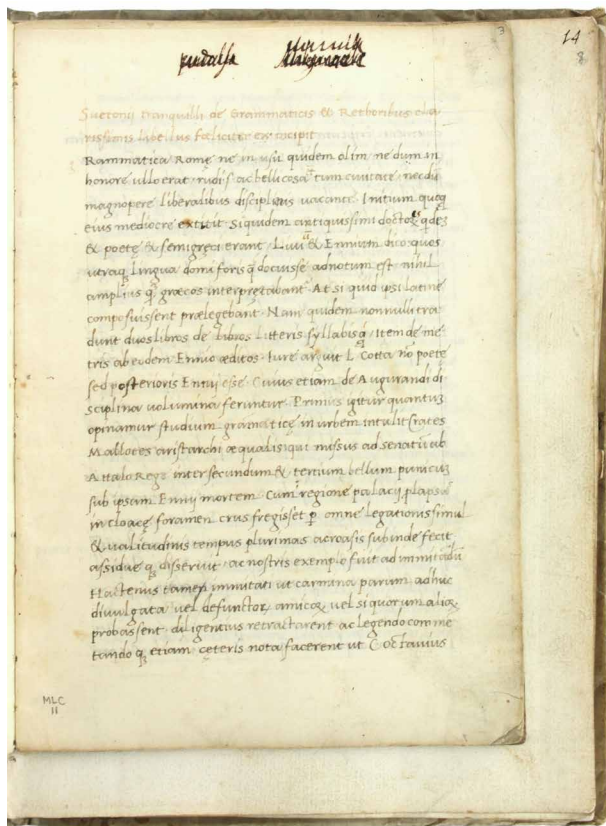 3
14
8
Suetonij tranquilli de Grammaticis & Rethoribus cla-
rissimis libellus Fœliciter incipit
Rammatica Rome ne in usu quidem olim ne dum in
honore ullo erat rudi s. ac bellicosa tum civitate necdū
magnopere liberalibus disciplinis vacante Initium queq̨
eius mediocre extitit Siquidem antiquissimi doctoꝝ qdēʒ
& poetę & semigręci erant Liuiū & Ennium dico quos
utraq̨ lingua domi foris q̨ docuisse adnotum est nihil
amplius q̄ græcos interprętabant At si quid ipsi latine
composuissent prælegebant Nam quidem nonnulli tra
dunt duos libros de libros Litteris syllabisq̨ Item de me
tris ab eodem Ennio æditos iure arguit L Cotta nō poetę
sed posterioris Ennij esse Cuius etiam de Augurandi di
sciplina uolumina feruntur Primus igitur quantuʒ
opinamur studium gramaticę in urbem intulit Crates
Mallotes aristarchi æqualis qui missus ad senatū ab
Attalo Rege inter secundum & tertium bellum punicuʒ
sub ipsam Ennij mortem Cum regione palacij plapsꝰ
in cloacę foramen crus fregisset p̱ omne legationis simul
& ualitudinis tempus plurimas acroasis subinde fecit
assidue q̨ disseruit ac nostris exemplo fuit ad immitadū
Hactenus tamen immitati ut carmina parum adhuc
divulgata uel defunctoꝝ amicoꝝ uel si quorum alioꝝ
probassent diligentius retractarent ac legendo comme
tando q̨ etiam ceteris nota facerent ut C octauius
MLC
11